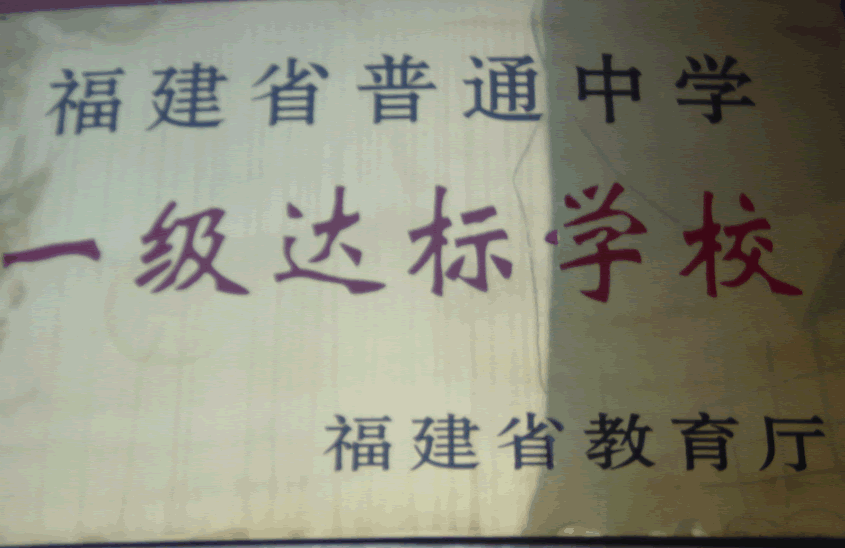 福建省普通中学
一级达标学校
福建省教育厅